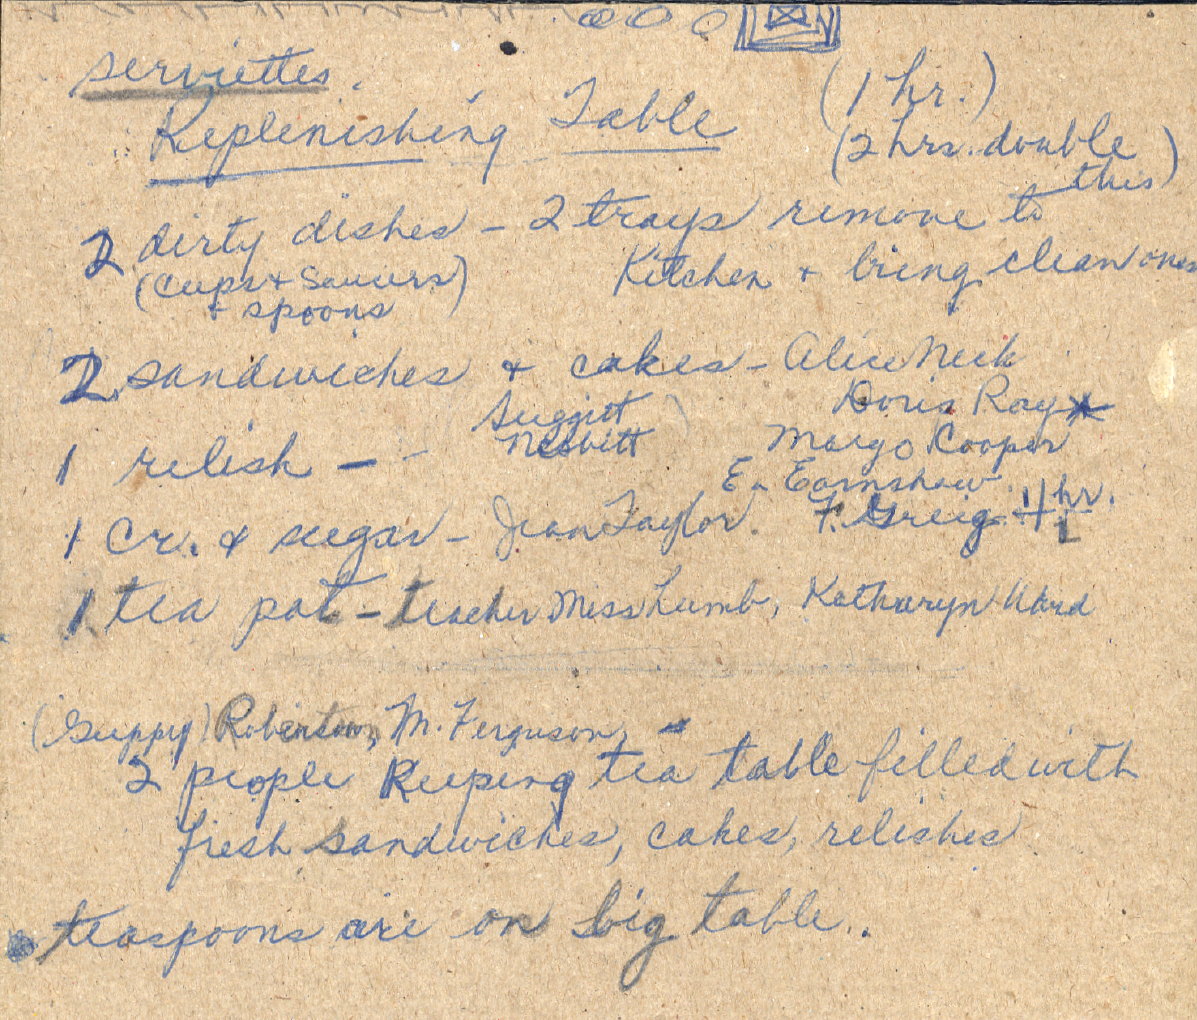 serviettes.
Replenishing Table (1 hr.)
(2 hrs. double this)
2 dirty dishes - 2 trays remove to
(cups + saucers) Kitchen + bring clean ones
+ spoons
2 sandwiches + cakes - Alice Neek
Suggitt Doris Ray *
1 relish - Nesbitt Margo Cooper
E. Earnshaw.
1 cr. & sugar - Jean Taylor. F. Greig hr.
1 tea pot - teacher Miss Lumb, Katharyn Ward
(Guppy) Robertson, M. Ferguson, -
2 people Keeping tea table filled with
fresh sandwiches, cakes, relishes
teaspoons are on big table.